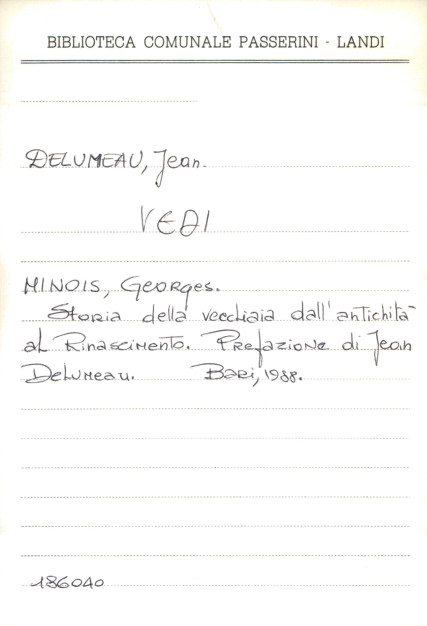 BIBLIOTECA COMUNALE PASSERINI - LANDI
DELUMEAU, Jean.
VEDI
MINOIS, Georges.
Storia della vecchiaia dall'antichità
al Rinascimento. Prefazione di Jean
Delumeau. Bari, 1988.
186040